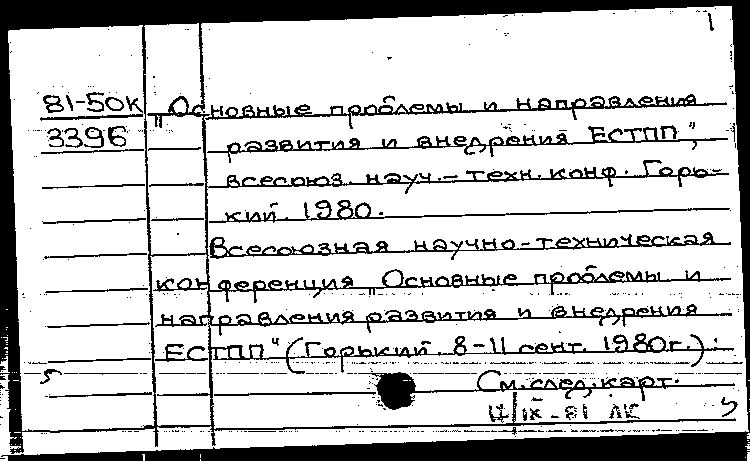 1
81-50К „Основные проблемы и направления
3396 развития и внедрения ЕСТПП",
всесоюз. науч.-техн. конф. Горь-
кий. 1980.
Всесоюзная научно-техническая
конференция „Основные проблемы и
направления развития и внедрения
ЕСТПП" (Горький. 8-11 сент. 1980г.):
См. след. карт.
17/IX-81 ЛК